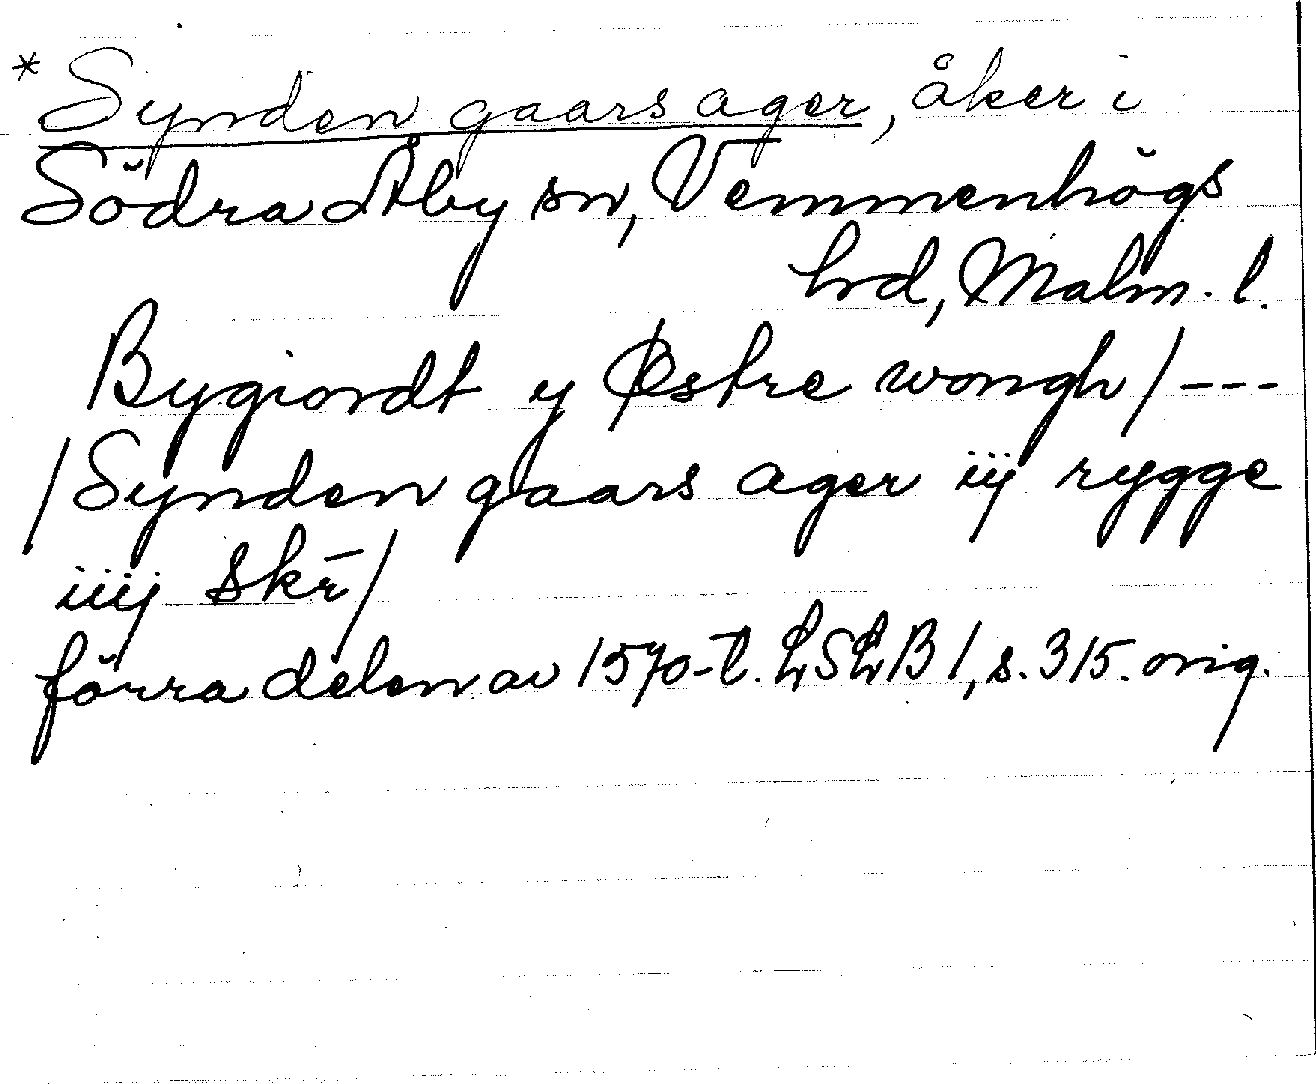 * Synden gaars ager, åker i
Södra Åby sn, Vemmenhögs
hd, Malm. l.
Bygiordt y Østre wongh / ---
/ Synden gaars ager iij rygge
iiij skr̄ /
förra delen av 1570-t. LSLB 1, s. 315. orig.